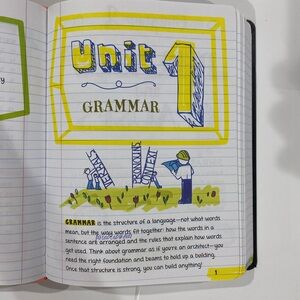 Unit 1
GRAMMAR
TENSES
PRONOUNS
CONTEXT
GRAMMAR is the structure of a language—not what words
mean, but the way words fit together: how the words in a
sentence are arranged and the rules that explain how words
get used. Think about grammar as if you're an architect—you
need the right foundation and beams to hold up a building.
Once that structure is strong, you can build anything!
1